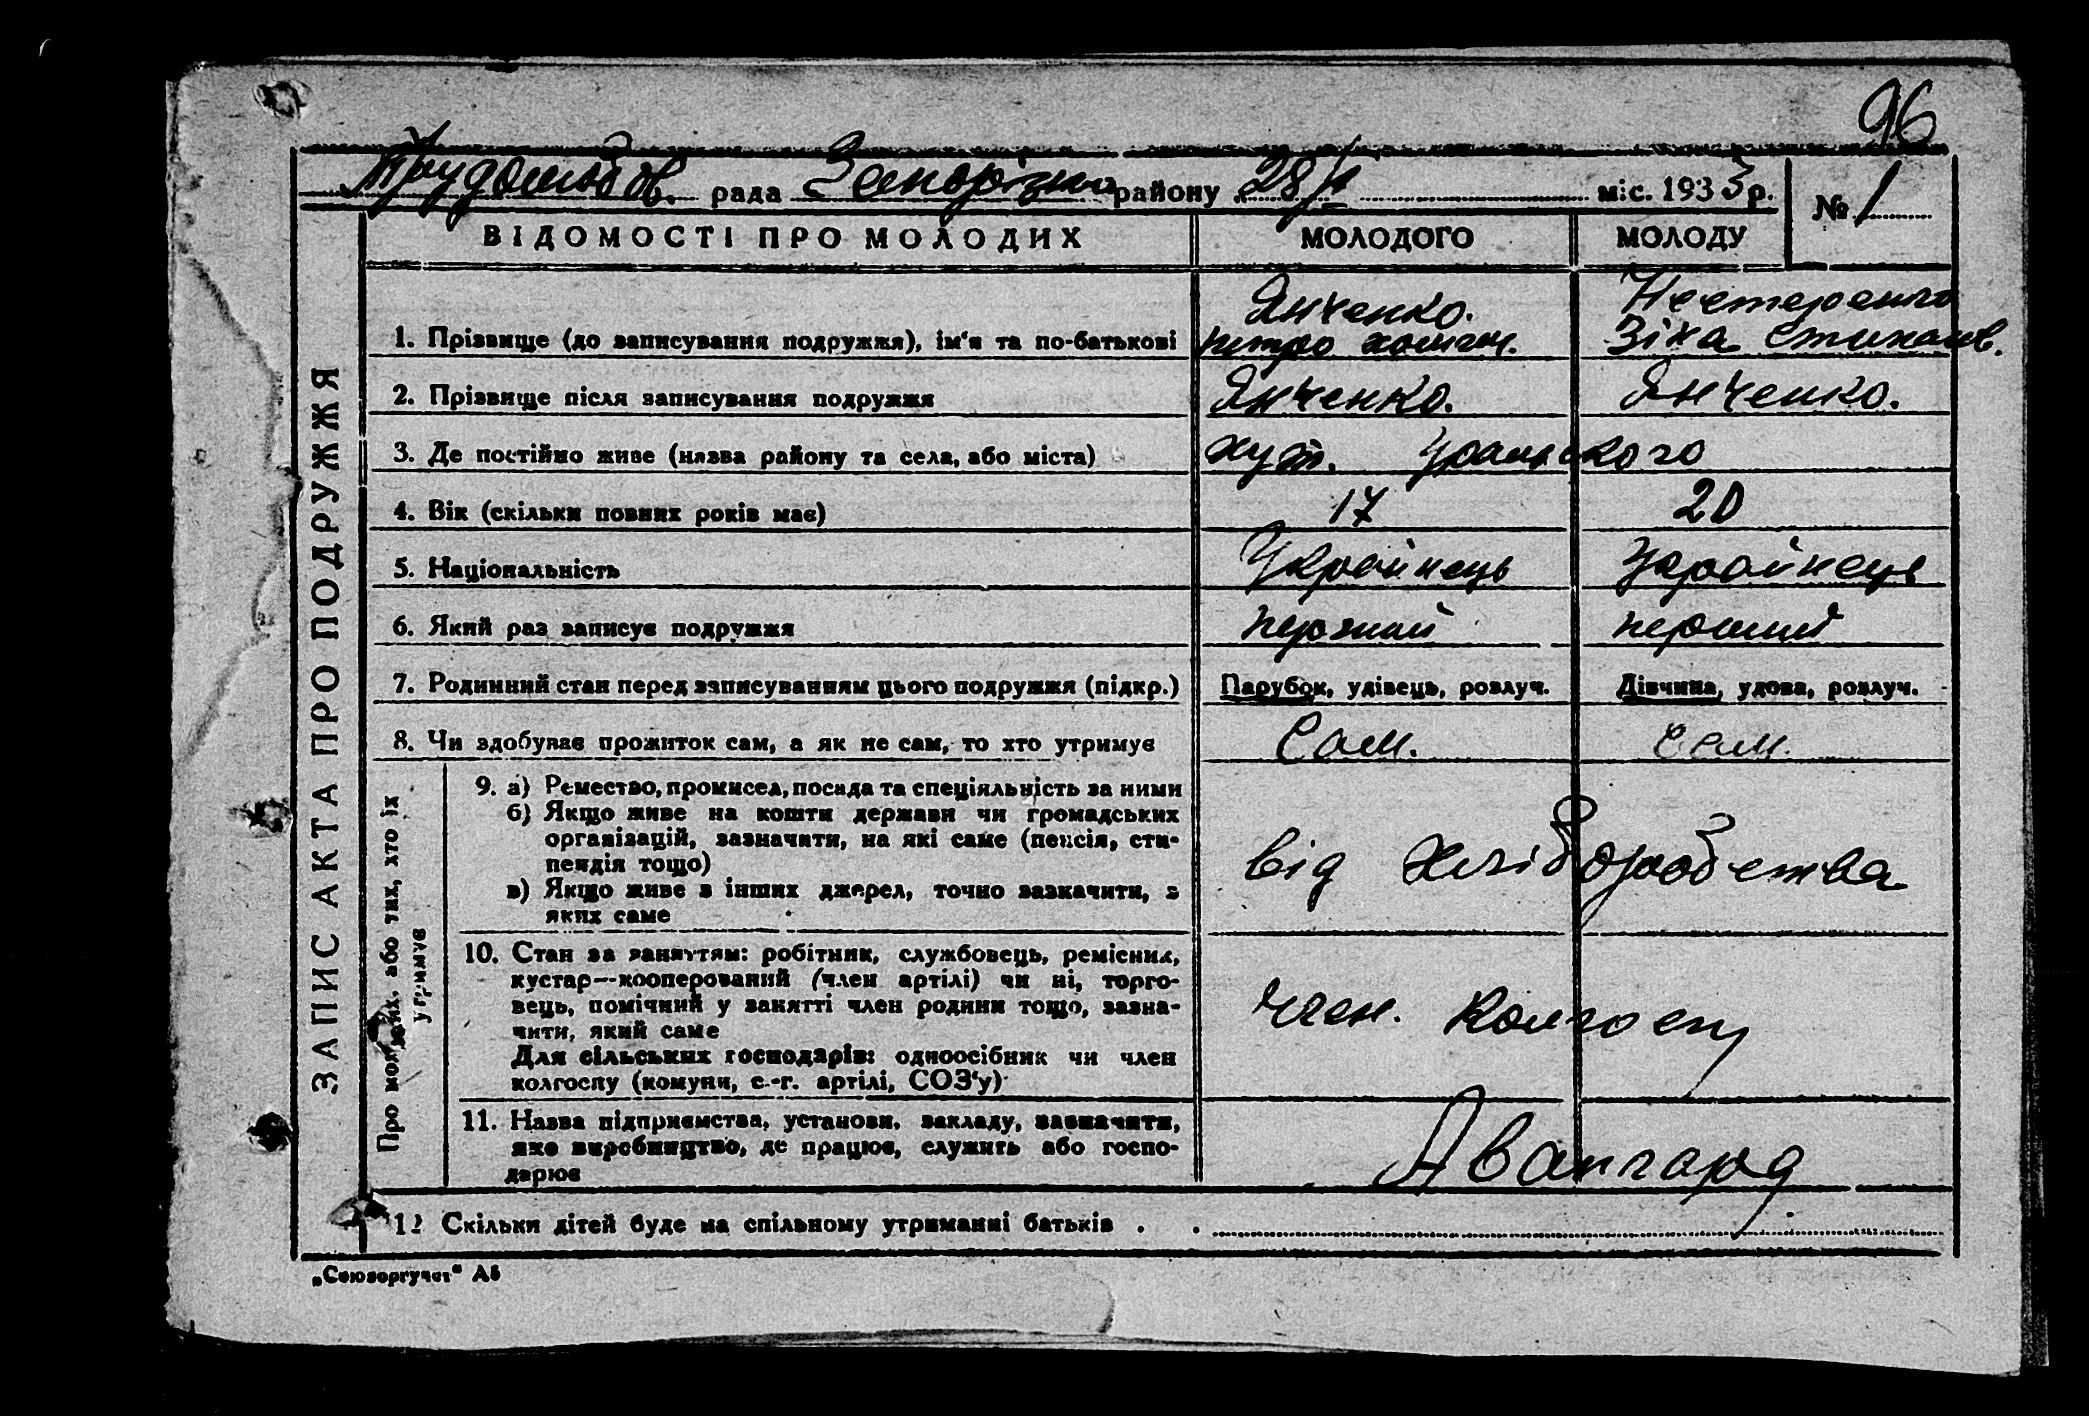 96
Трудолюбов. рада Запорізького району 28/I міс. 1933 р. № 1
ЗАПИС АКТА ПРО ПОДРУЖЖЯ
ВІДОМОСТІ ПРО МОЛОДИХ МОЛОДОГО МОЛОДУ
Янченко. Нестеренко
1. Прізвище (до записування подружжя), ім'я та по-батькові Петро хомич. Зіна
2. Прізвище після записування подружжя Янченко. Янченко.
3. Де постійно живе (назва району та села, або міста) хут.
4. Вік (скільки повних років має) 17 20
5. Національність Українець Українець
6. Який раз записує подружжя первий перший
7. Родинний стан перед записуванням цього подружжя (підкр.) Парубок, удівець, розлуч. Дівчина, удова, розлуч.
8. Чи здобуває прожиток сам, а як не сам, то хто утримує Сам. Сам.
Про молодих, або тих, хто їх утримує
9. а) Ремество, промисел, посада та спеціяльність за ними
б) Якщо живе на кошти держави чи громадських
організацій, зазначити, на які саме (пенсія, сти-
пендія тощо)
в) Якщо живе з інших джерел, точно зазначити, з
яких саме
від хліборобства
10. Стан за заняттям: робітник, службовець, ремісник,
кустар—кооперований (член артілі) чи ні, торго-
вець, помічний у занятті член родини тощо, зазна-
чити, який саме
Для сільських господарів: одноосібник чи член
колгоспу (комуни, с.-г. артілі, СОЗ'у)
член. Колгоспу
11. Назва підприємства, установи, закладу, зазначити,
яке виробництво, де працює, служить або госпо-
дарює
Авангард
12 Скільки дітей буде на спільному утриманні батьків . .
„Союзоргучет" А5